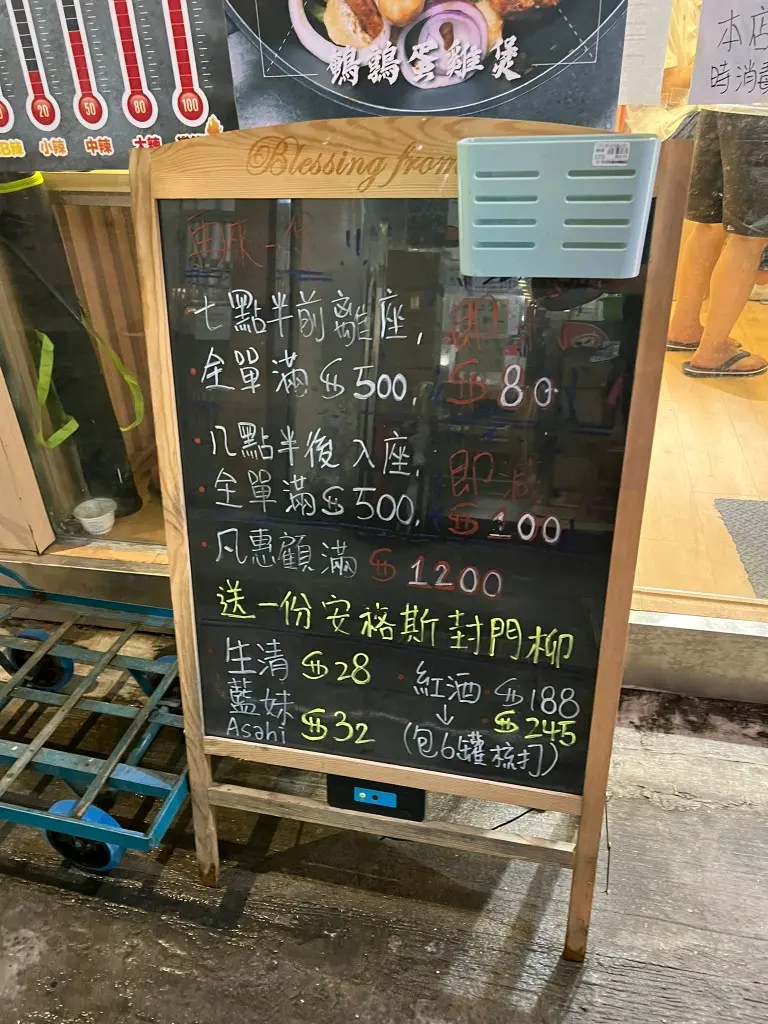 20
50
80
100
小辣
中辣
大辣
鵪鶉蛋雞煲
本店
時消費
Blessing from
七點半前離座,
全單滿 $500, $80
八點半後入座, 即減
全單滿$500, $100
凡惠顧滿 $1200
送一份安格斯封門柳
生清 $28
藍妹
Asahi $32
紅酒 $188
↓ $245
(包6罐梳打)